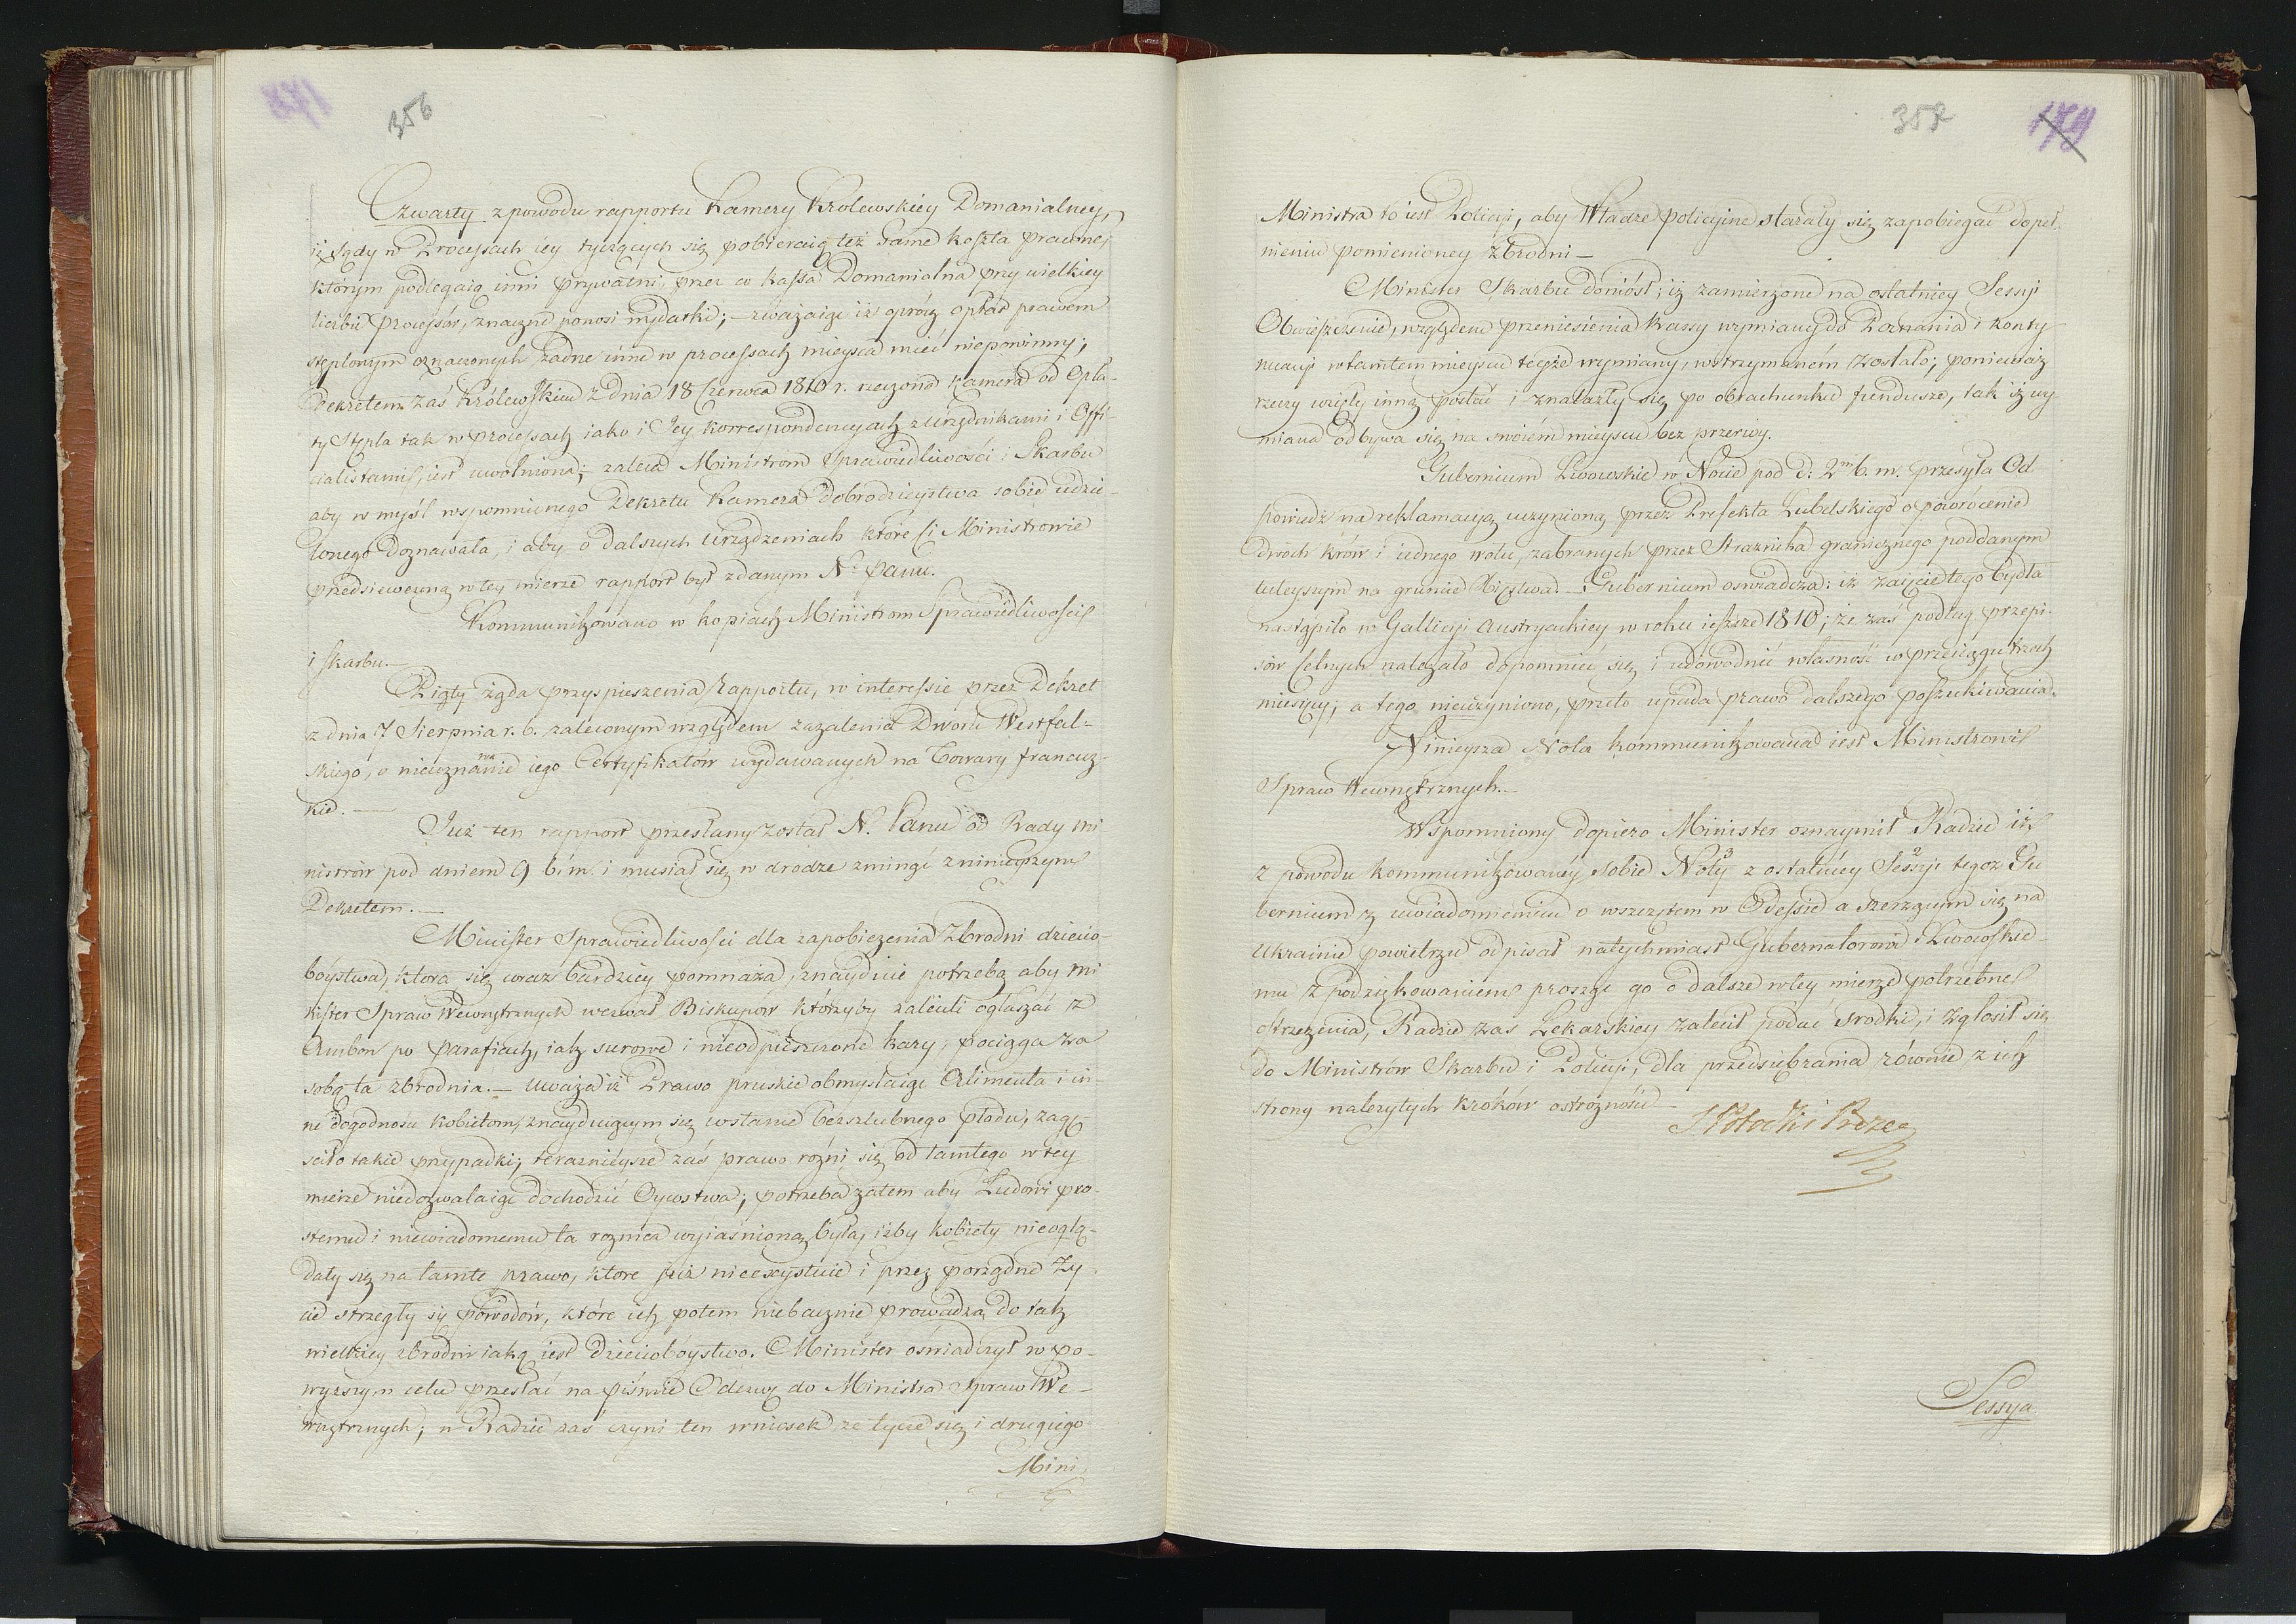 356
Czwarty z powodu rapportu Kamery Krolewskiey Domanialney,
iż sądy w Processach iey tyczących się pobieraią też same koszta prawne,
którym podlegaią inni prywatni, przez co Kassa Domanialna przy wielkiey
liczbie processów, znaczne ponosi wydatki; – zważaiąc iż oprócz opłat prawem
steplowym oznaczonych żadne inne w processach mieysca mieć niepowinny;
Dekretem zaś Królewskim z dnia 18 Czerwca 1810 r. rzeczona Kamera od Opła-
ty Stepla tak w processach iako i Jey korrespondencyach z Urzędnikami i Offi-
cialistami, iest uwolniona; – zaleca Ministrom Sprawiedliwości i Skarbu
aby w myśl wspomnionego Dekretu Kamera Dobrodzieystwa sobie udzie-
lonego doznawała, i aby o dalszych urządzeniach które Ci Ministrowie
przedsiewezmą w tey mierze rapport był zdanym N. Panu.
Kommunikowano w kopiach Ministrom Sprawiedliwości
i Skarbu. –
Piąty żąda przyspieszenia Rapportu, w interessie przez Dekret
z dnia 7 Sierpnia r. b. zaleconym względem zażalenia Dworu Westfal-
skiego, o nieuznawanie iego Certyfikatów wydawanych na Towary francuz-
kie. –
Już ten rapport przesłany został N. Panu od Rady Mi
nistrów pod dniem 9 b. m. i musiał się w drodze zminąć z ninieyszym
Dekretem. –
Minister Sprawiedliwości dla zapobieżenia Zbrodni dziecio-
bóystwa, ktora się coraz bardziey pomnaża, znayduie potrzebą aby Mi
nister Spraw Wewnętrznych wezwał Biskupów którzyby zalecili ogłaszać z
Ambon po parafiach, iak surowe i nieodpuszczone kary, pociąga za
sobą ta zbrodnia. – Uważa iż Prawo pruskie obmyślaiąc Alimenta i in-
ne dogodności kobietom, znayduiącym się w stanie bezszlubnego płodu, zagę-
sciło takie przypadki; teraznieysze zaś prawo rożni się od tamtego w tey
mierze niedozwalaiąc dochodzić Oycostwa; potrzeba zatem aby Ludowi pro-
stemu i niewiadomemu ta roznica wyiaśnioną była, iżby kobiety nieoglą-
dały się na tamte prawo, ktore już nieexystuie i przez porządne ży
cie strzegły się powodów, które ich potem niebacznie prowadzą do tak
wielkiey zbrodni iaką iest Dzieciobóystwo. Minister oświadczył w po-
wyższym celu przesłać na piśmie Odezwę do Ministra Spraw We-
wnętrznych; w Radzie zaś czyni ten wniosek ze tycze się i drugiego
Mini
357
Ministra to iest Policyi, aby Władze policyine starały się zapobiegać dopeł-
nieniu pomienioney Zbrodni –
Minister Skarbu doniósł; iż zamierzone na ostatniey Sessyi
Obwieszczenie, względem przeniesienia Kassy wymiany do Poznania i konty-
nuacyi w tamtem mieyscu teyże wymiany, wstrzymanem zostało; ponieważ
rzeczy wzięły inną postać i znalazły się po obrachunku fundusze, tak iż wy
miana odbywa się na swoiém mieyscu bez przerwy.
Gubernium Lwowskie w Nocie pod d: 2 b. m. przesyła Od
powiedź na reklamacyą uczynioną przez Prefekta Lubelskiego o powrócenie
dwóch krów i iednego wołu, zabranych przez Straznika granicznego poddanym
tuteyszym na gruncie Xięztwa – Gubernium oswiadcza: iż zaięcie tego bydła
nastąpiło w Gallicyi Austryackiey w roku ieszsze 1810; że zaś podług przepi-
sów Celnych należało dopomnieć się i udowodnić własność w przeciągu trzech
miesięcy, a tego nieuczyniono, przeto upada prawo dalszego poszukiwania.
Ninieysza Nota kommunikowana iest Ministrowi
Spraw Wewnętrznych. –
Wspomniony dopiero Minister oznaymił Radzie iż
z powodu kommunikowaney sobie Noty z ostatniey Sessyi tegoż Gu
bernium z uwiadomieniem o wszczętem w Odessie a szerzącym się na
Ukrainie powietrzu odpisał natychmiast Gubernatorowi Lwowskie-
mu z podziękowaniem prosząc go o dalsze w tey mierze potrzebne
ostrzeżenia, Radzie zas Lekarskiey zalecił podać środki, i zgłosił się
do Ministrów Skarbu i Policyi, dla przedsiębrania równie z ich
strony nalezytych kroków ostrożności –
S Potocki Prezes
Sessya